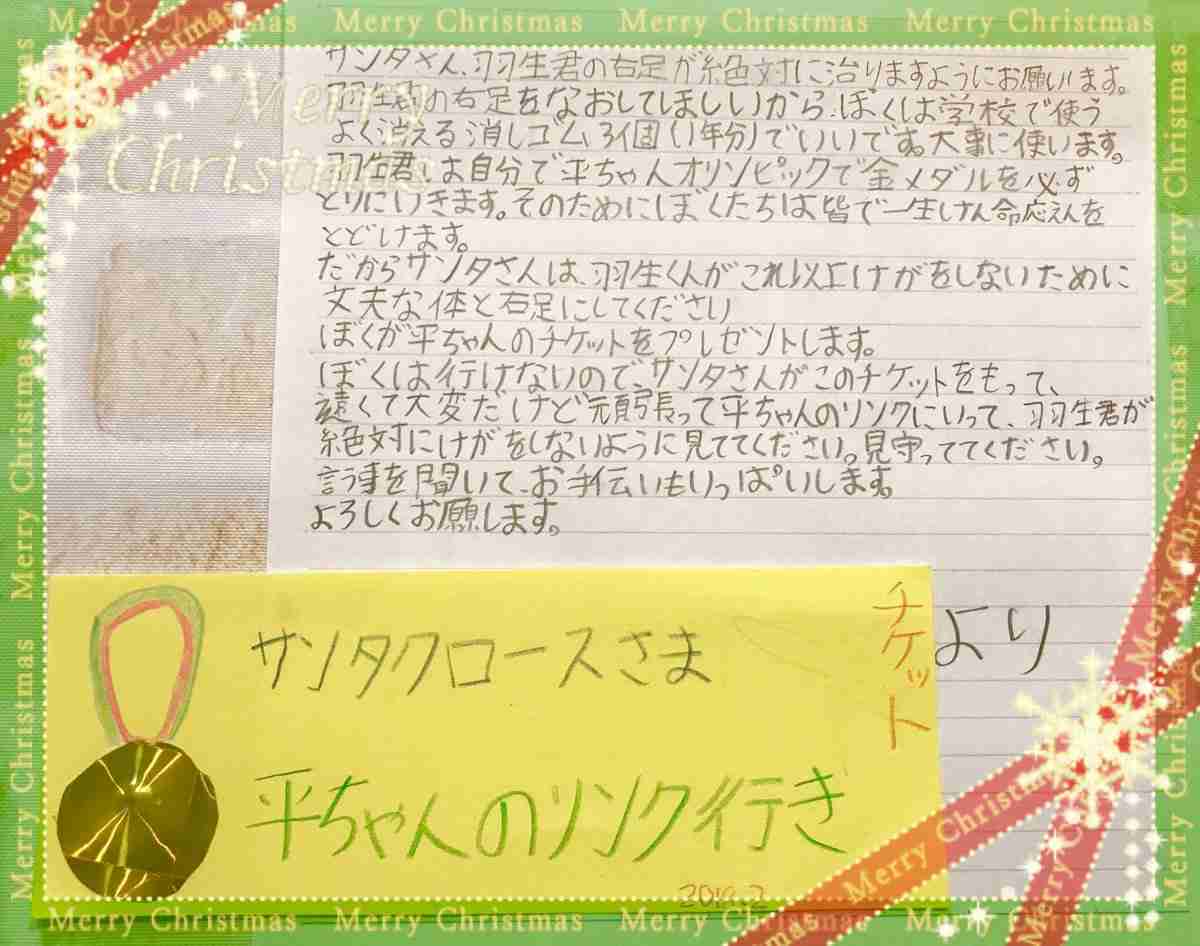 Merry Christmas Merry Christmas Merry Christmas Merry Christmas
Merry
Christmas
サンタさん、羽生君の右足が絶対に治りますようにお願います。
羽生君の右足をなおしてほしいから、ぼくは学校で使う
よく消える消しゴム3個(1年分)でいいです。大事に使います。
羽生君は自分で平ちゃんオリンピックで金メダルを必ず
とりにいきます。そのためにぼくたちは皆で一生けん命応えんを
とどけます。
だからサンタさんは、羽生くんがこれ以上けがをしないために
丈夫な体と右足にしてください
ぼくが平ちゃんのチケットをプレゼントします。
ぼくは行けないので、サンタさんがこのチケットをもって、
遠くて大変だけど頑張って平ちゃんのリンクにいって、羽生君が
絶対にけがをしないように見ててください。見守っててください。
言う事を聞いて、お手伝いもいっぱいします。
よろしくお願します。
より
チケット
サンタクロースさま
平ちゃんのリンク行き
Merry Christmas Merry Christmas Merry Christmas Merry Christmas